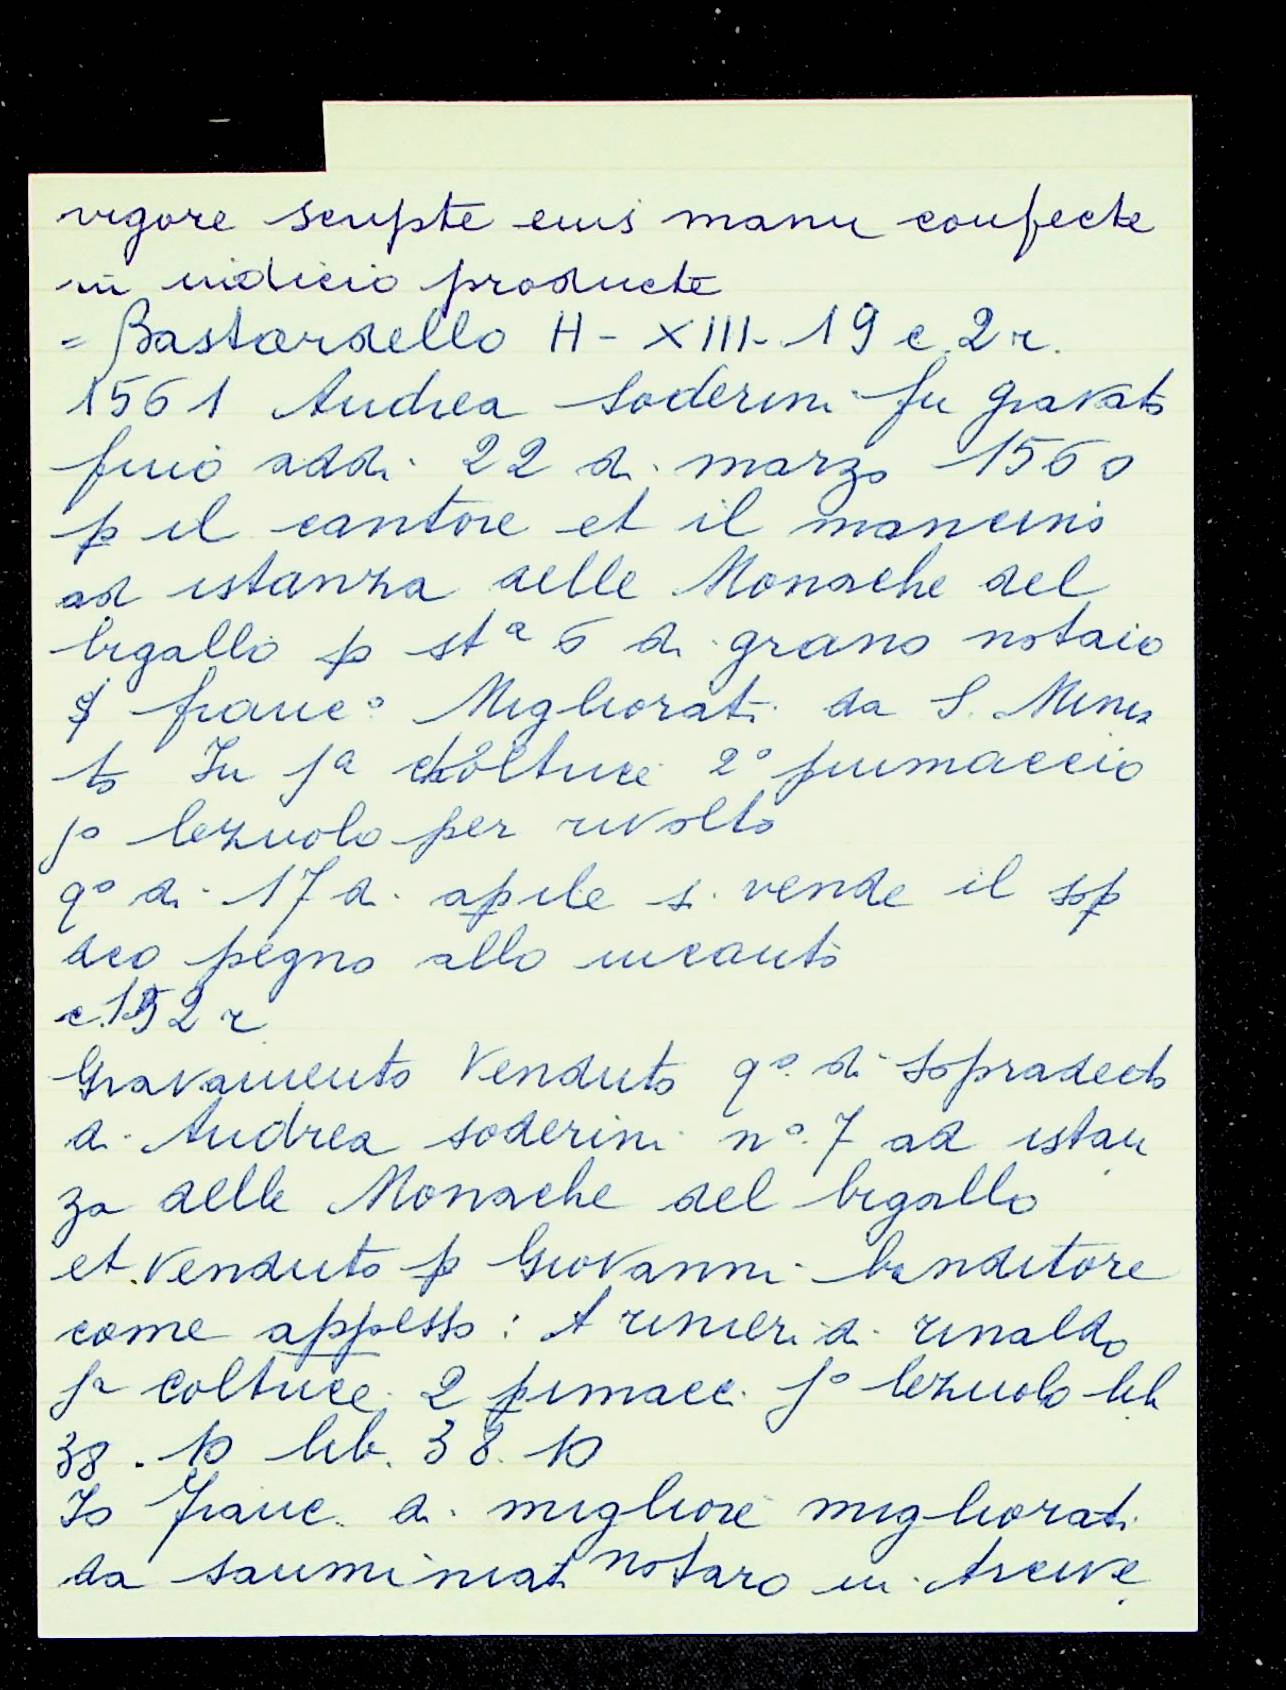 vigore scripte eius manu confecte
in iudicio producte
= Bastardello H - XIII - 19 c. 2 r.
1561 Andrea Soderini fu gravato
fino addi 22 di marzo 1560
p il cantore et il mancino
ad istanza delle Monache del
bigallo p stª 6 di grano notaio
franc° Migliorati da S. Minia
to In jª coltrice 2° piumaccio
j° lezuolo per rivolto
q° di 17 di aprile si vende il sop
dco pegno allo incanto
c. 152 r
Gravamento Venduto q° di sopradecto
di Andrea soderini n° 7 ad istan
za delle Monache del bigallo
et venduto p Giovanni banditore
come appesso : A rinieri di rinaldo
jª coltrice 2 pimacci j° lezuolo lib
38 . 10 lib. 38. 10
Io Franc. di migliore migliorati
da sanminiati notaro in Greve